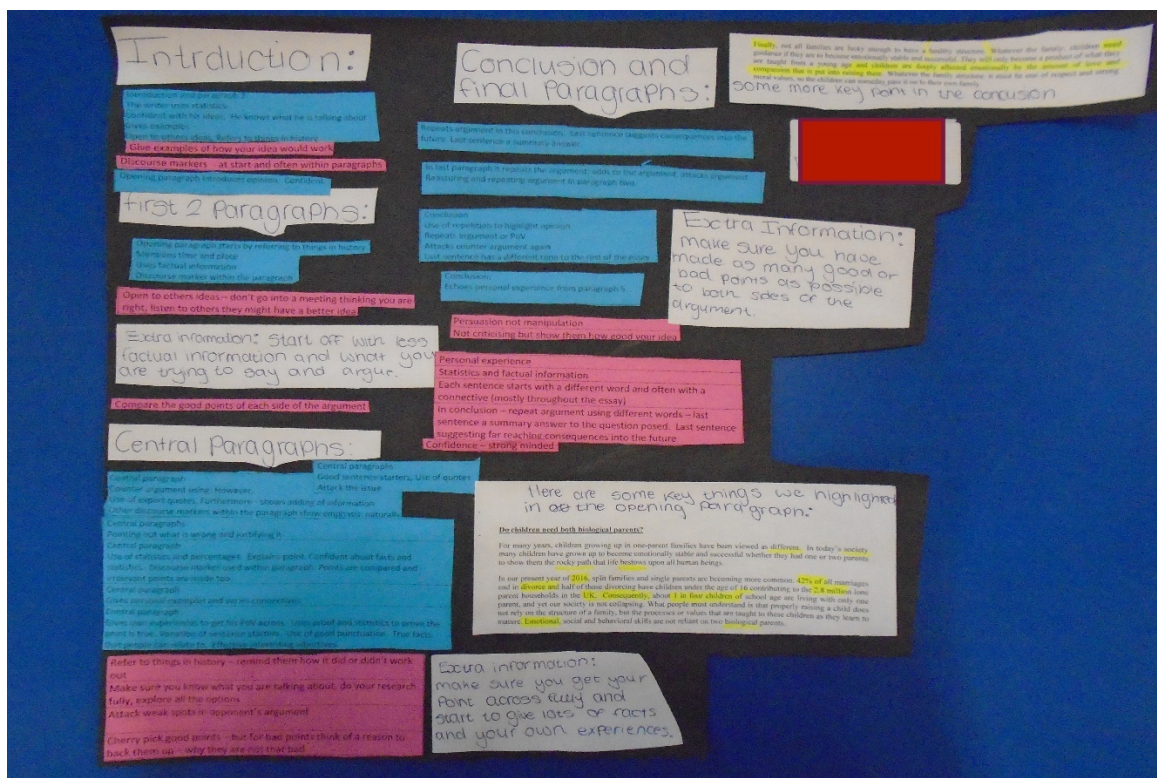 Intrduction:
Introduction and paragraph 2
The writer uses statistics
Confident with his ideas. He knows what he is talking about
Gives examples
Open to others ideas. Refers to things in history
Give examples of how your idea would work
Discourse markers – at start and often within paragraphs
Opening paragraph introduces opinion. Confident.
first 2 Paragraphs:
Opening paragraph starts by referring to things in history
Mentions time and place
Uses factual information
Discourse marker within the paragraph
Open to others ideas – don't go into a meeting thinking you are
right, listen to others they might have a better idea
Extra infromation: Start off with less
factual information and what you
are trying to say and argue.
Compare the good points of each side of the argument
Central Paragraphs:
Central paragraph
Counter argument using: However,
Use of expert quotes, Furthermore - shows adding of information
Other discourse markers within the paragraph
Central paragraphs
Good sentence starters, Use of quotes
Attack the issue
Central paragraphs
Pointing out what is wrong and justifying it
Central paragraph
Use of statistics and percentages. Explains point. Confident about facts and
statistics. Discourse marker used within paragraph. Points are compared and
irrelevant points are made too
Central paragraph
Gives personal examples and
Central paragraph
Gives own experiences to get his POV across. Uses proof and statistics to prove the
point is true. Variation of sentence starters. Use of good punctuation. True facts
that people can relate to, effective interesting adjectives
Refer to things in history – remind them how it did or didn't work
out
Make sure you know what you are talking about, do your research
fully, explore all the options
Attack weak spots in opponent's argument
Cherry pick good points – but for bad points think of a reason to
back them up – why they are not that bad
Conclusion and
final Paragraphs:
Repeats argument in this conclusion. Last sentence suggests consequences into the
future. Last sentence a summary answer.
In last paragraph it repeats the argument, adds to the argument, attacks argument
Reassuring and repeating argument in paragraph two.
Conclusion
Use of repetition to highlight opinion
Repeats argument or PoV
Attacks counter argument again
Last sentence has a different tone to the rest of the essay
Conclusion:
Echoes personal experience from paragraph 5
Persuasion not manipulation
Not criticising but show them how good your idea
Personal experience
Statistics and factual information
Each sentence starts with a different word and often with a
connective (mostly throughout the essay)
In conclusion – repeat argument using different words – last
sentence a summary answer to the question posed. Last sentence
suggesting far reaching consequences into the future
Confidence – strong minded
Finally, not all families are lucky enough to have a healthy structure. Whatever the family, children need
guidance if they are to become emotionally stable and successful. They will only become a product of what they
are taught from a young age and children are deeply affected emotionally by the amount of love and
compassion that is put into raising them. Whatever the family structure, it must be one of respect and strong
moral values, so the children can someday pass it on to their own family.
some more key point in the conclusion
Extra Information:
make sure you have
made as many good or
bad points as possible
to both sides of the
argument.
Here are some key things we highlighted
in the opening paragraph:
Do children need both biological parents?
For many years, children growing up in one-parent families have been viewed as different. In today's society
many children have grown up to become emotionally stable and successful whether they had one or two parents
to show them the rocky path that life bestows upon all human beings.
In our present year of 2016, split families and single parents are becoming more common. 42% of all marriages
end in divorce and half of those divorcing have children under the age of 16 contributing to the 2.8 million lone
parent households in the UK. Consequently, about 1 in four children of school age are living with only one
parent, and yet our society is not collapsing. What people must understand is that properly raising a child does
not rely on the structure of a family, but the processes or values that are taught to these children as they learn to
mature. Emotional, social and behavioral skills are not reliant on two biological parents.
Extra information:
make sure you get your
Point across fully and
start to give lots of facts
and your own experiences.